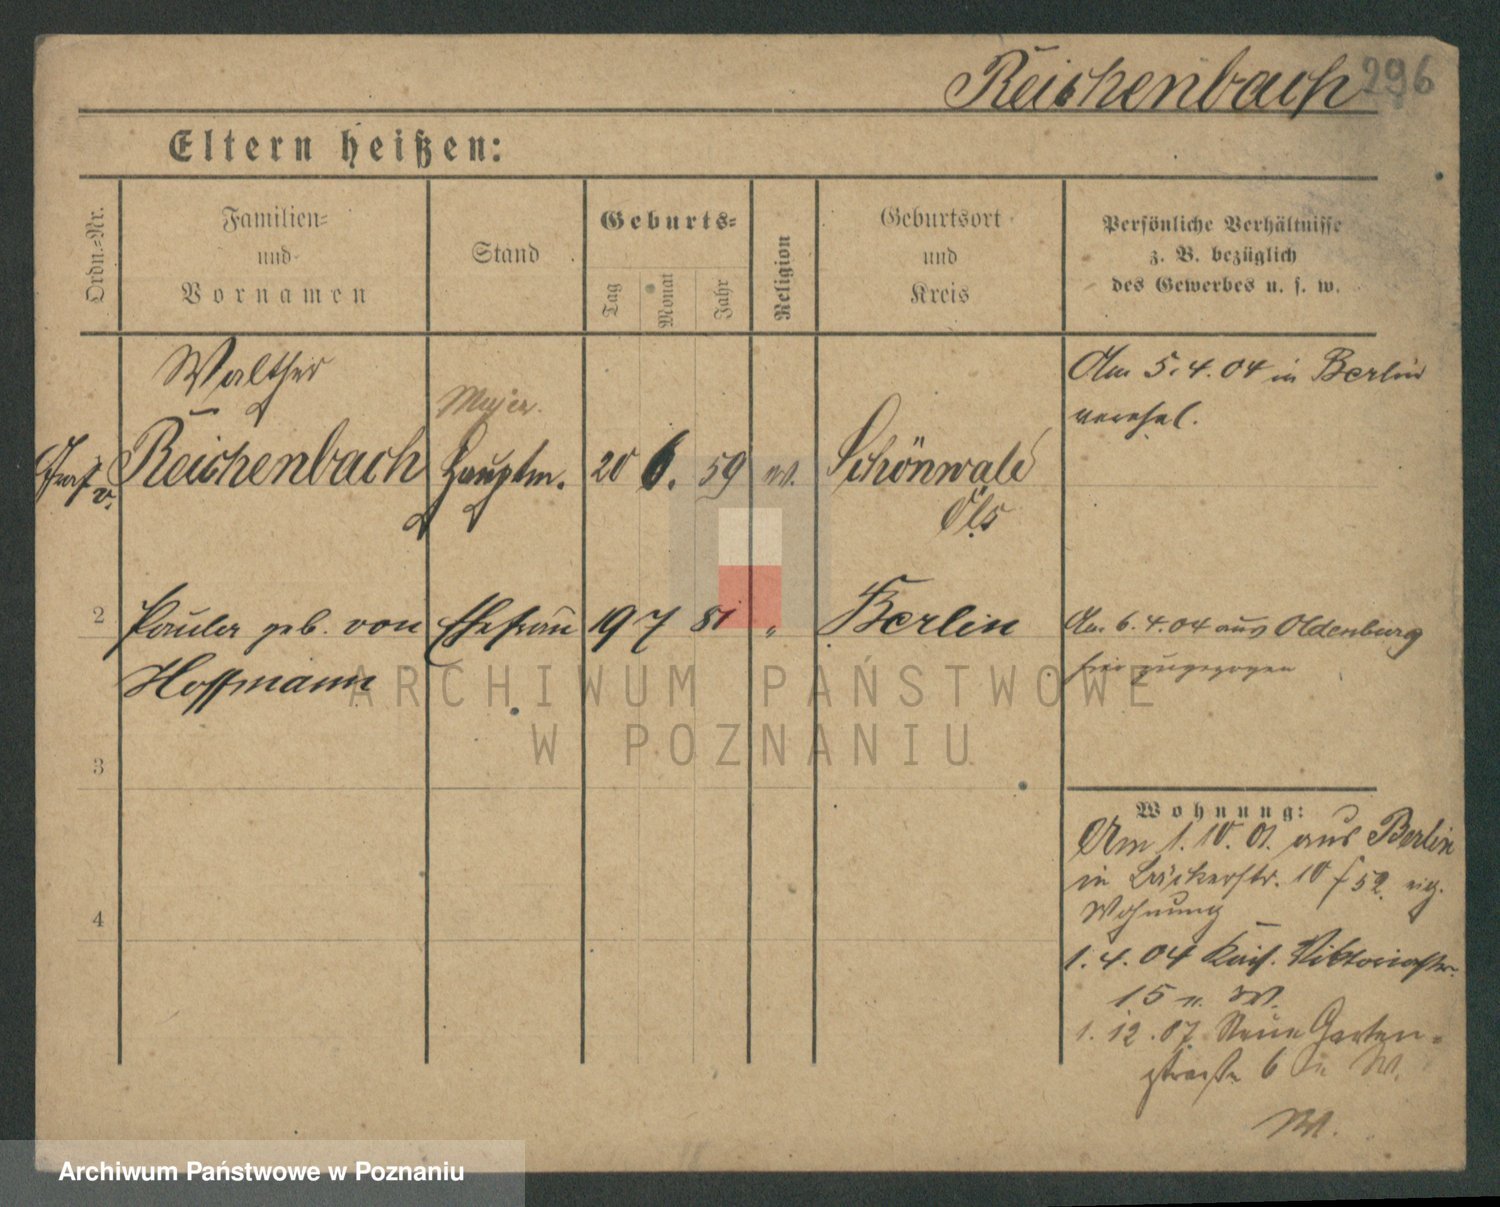 Reichenbach 296
Eltern heißen:
Ordn.=Nr.
Familien=
und
Vornamen
Stand
Geburts=
Tag
Monat
Jahr
Religion
Geburtsort
und
Kreis
Persönliche Verhältnisse
z. B. bezüglich
des Gewerbes u. s. w.
Walther
Graf v. Reichenbach
Major.
Hauptm.
20 6. 59
Schönwald
Öls
Am 5.4.04 in Berlin
verehel.
2 Paula geb. von
Hoffmann
Ehefrau
19 7 81 "
Berlin
Am 6.4.04 aus Oldenburg
hier zugezogen
3
4
Wohnung:
Am 1.10.01. aus Berlin
in Bäckerstr. 10 eig.
Wohnung
1.4.04 Kais. Viktoriastr.
15 e. W.
1.12.07 Neue Garten=
straße 6 W.
ARCHIWUM PAŃSTWOWE
W POZNANIU
Archiwum Państwowe w Poznaniu